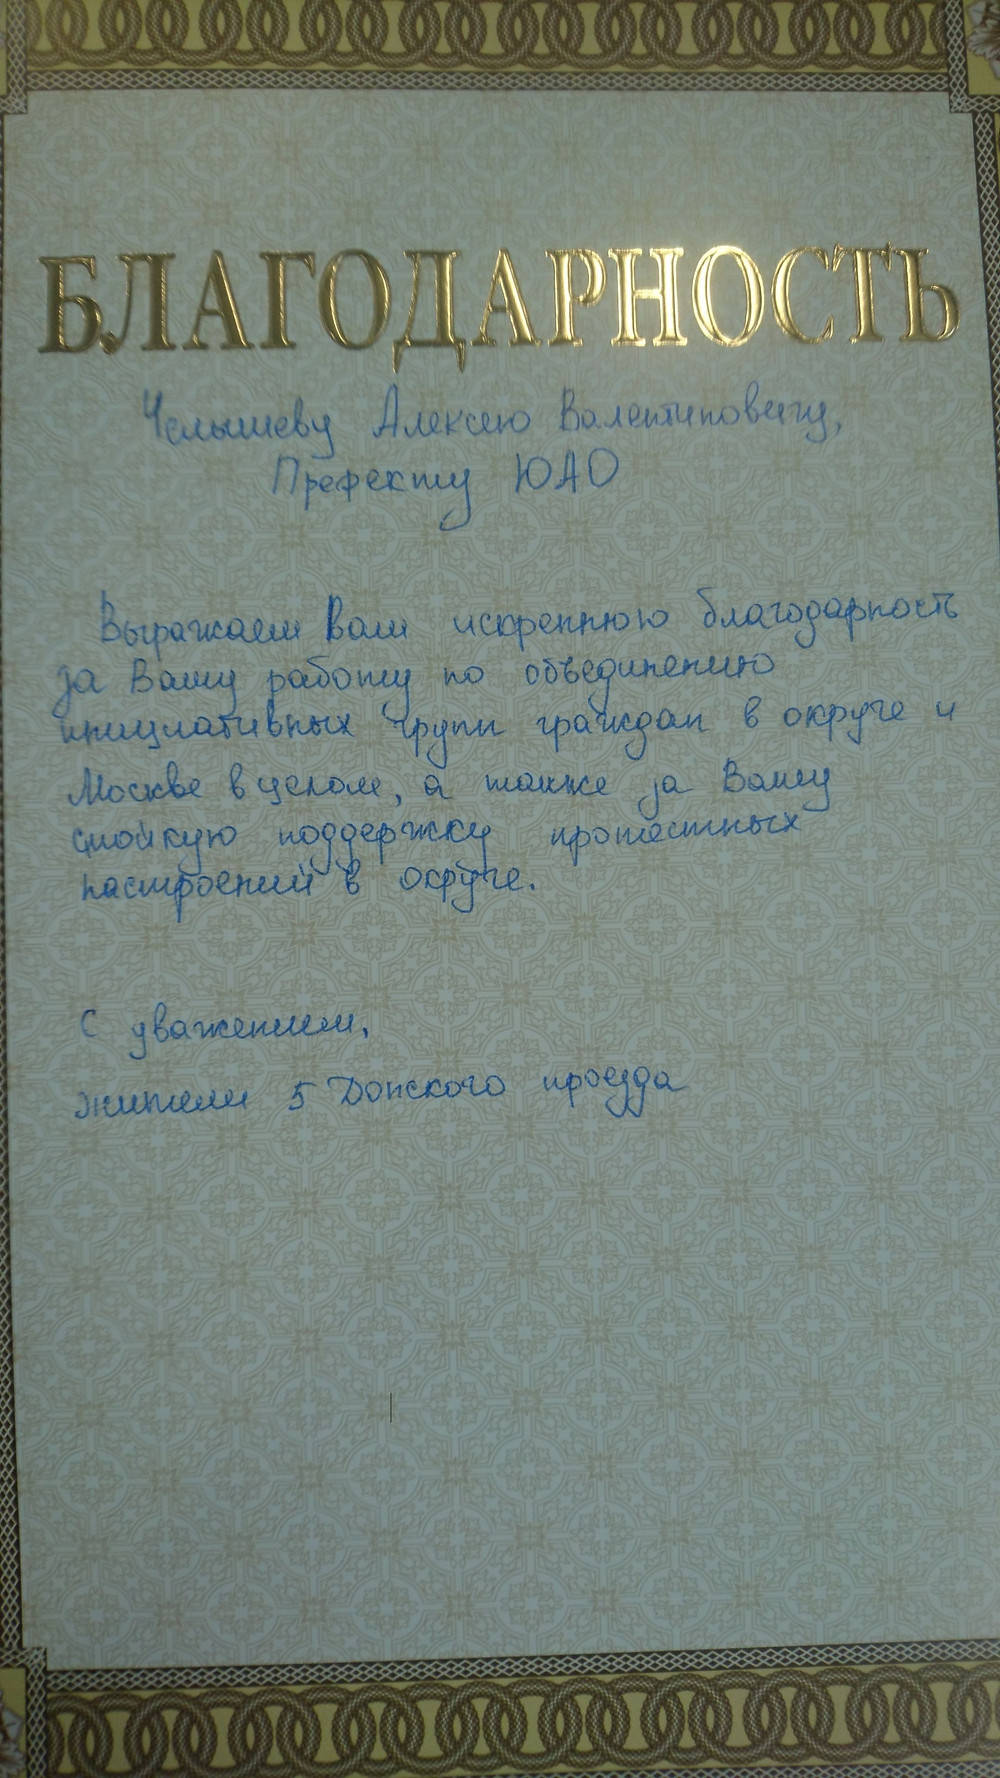 БЛАГОДАРНОСТЬ
Челышеву Алексею Валентиновичу,
Префекту ЮАО
Выражаем Вам искреннюю благодарность
за Вашу работу по объединению
инициативных групп граждан в округе и
Москве в целом, а также за Вашу
стойкую поддержку протестных
настроений в округе.
С уважением,
жители 5 Донского проезда